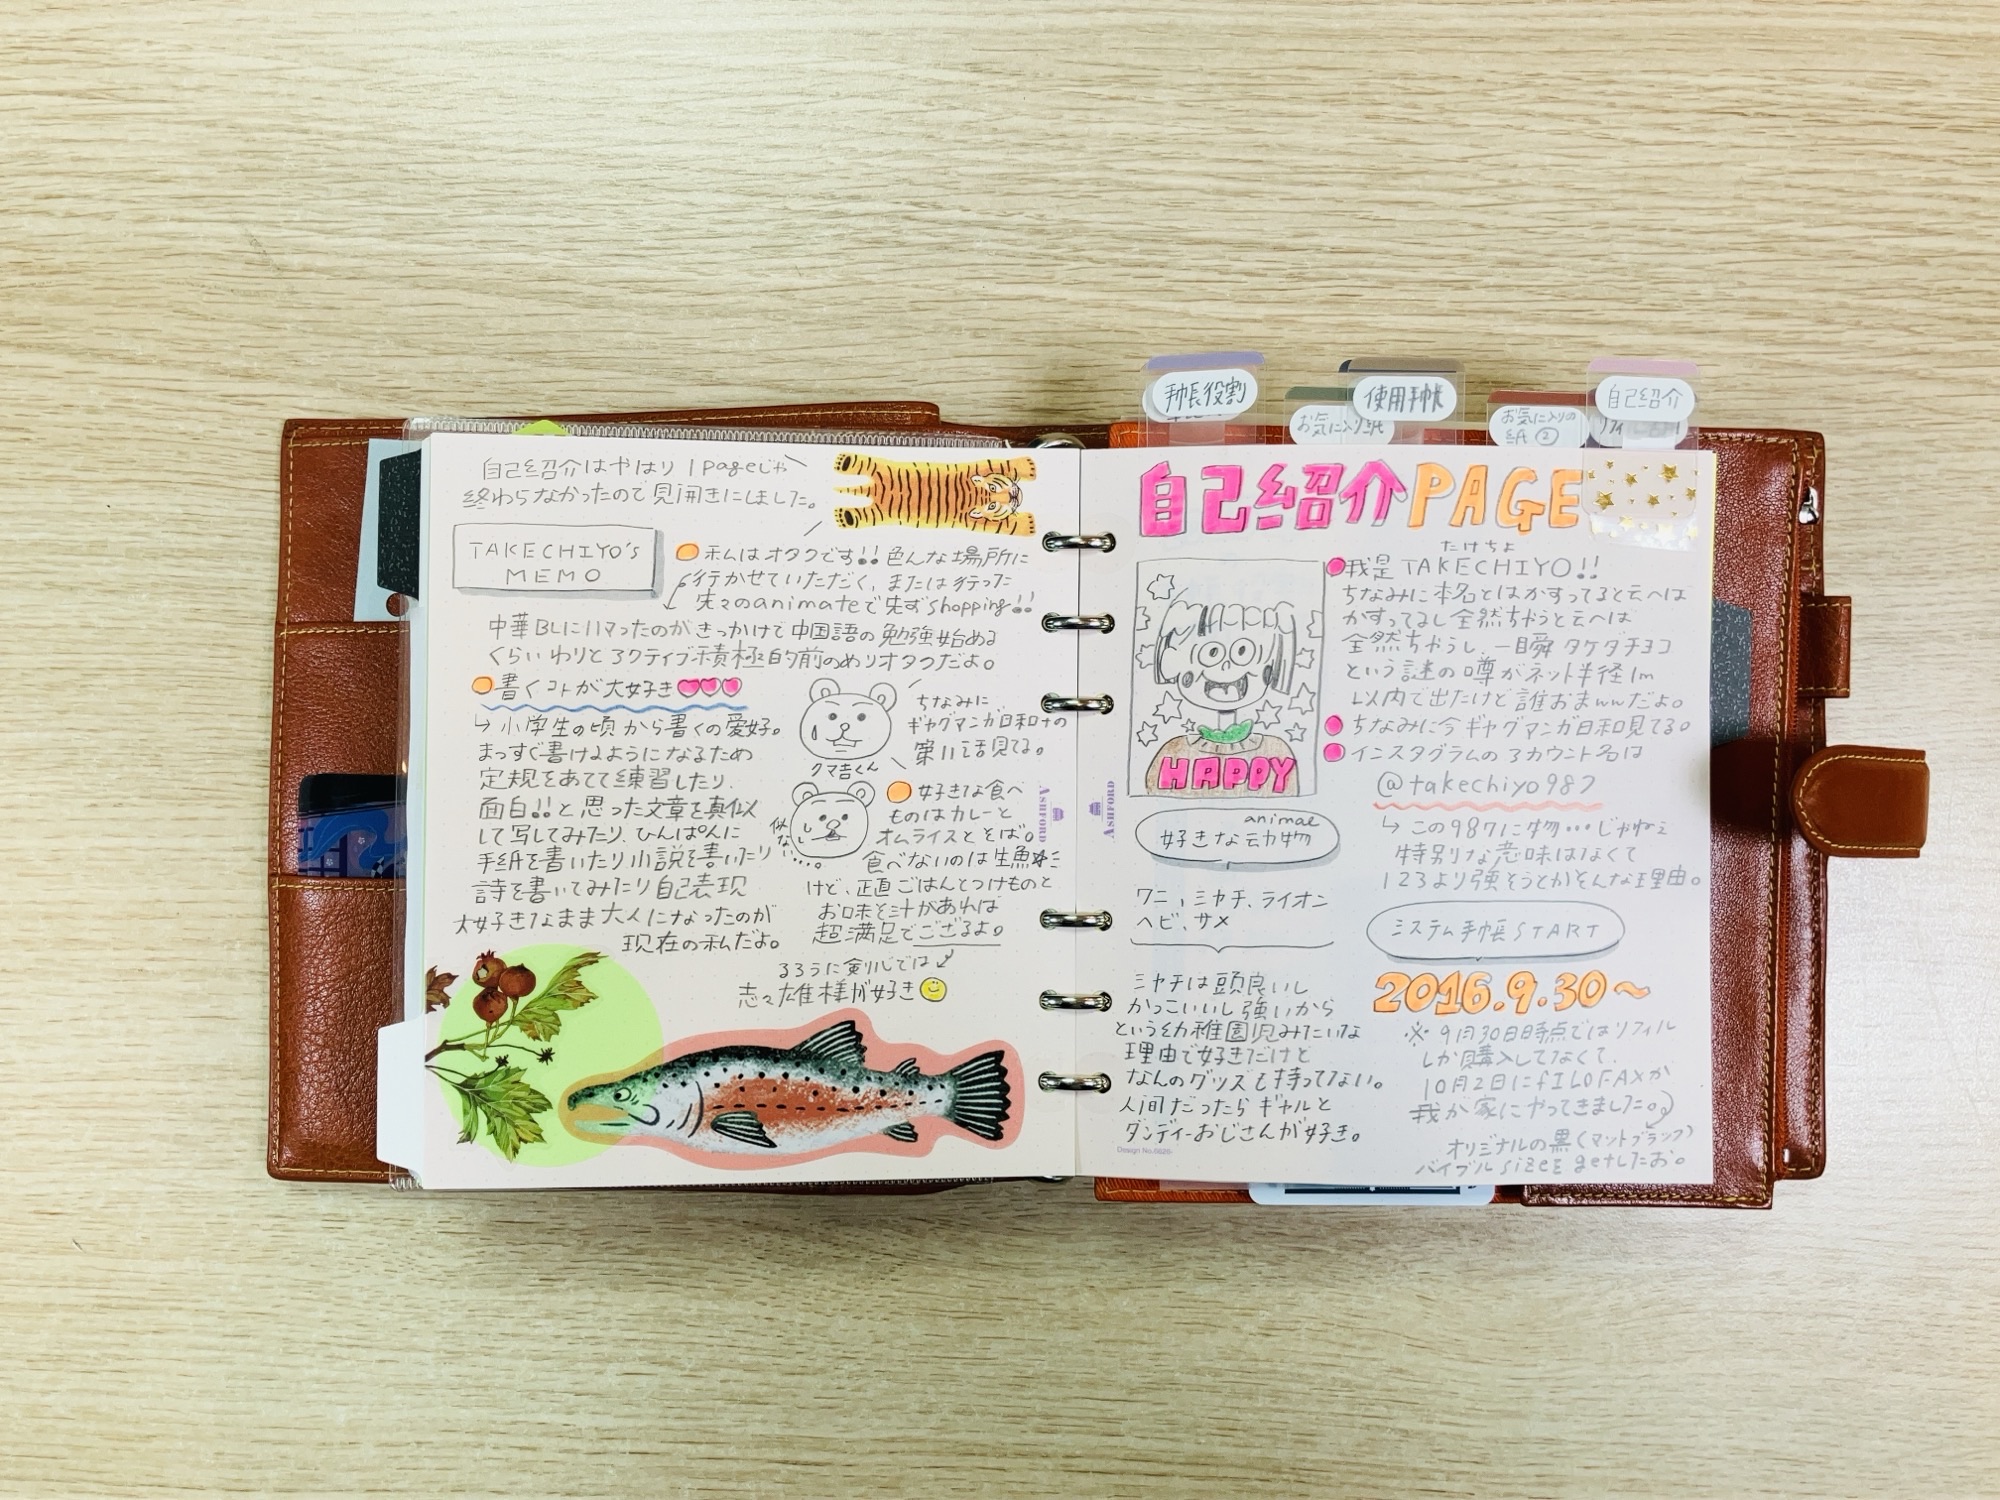 自己紹介はやはり1pageじゃ
終わらなかったので見開きにしました。
TAKECHIYO's
MEMO
私はオタクです!!色んな場所に
行かせていただく、または行った
先々のanimateで先ずshopping!!
中華BLにハマったのがきっかけで中国語の勉強始める
くらいわりとアクティブ積極的前のめりオタクだよ。
書くコトが大好き
↳小学生の頃から書くの愛好。
まっすぐ書けるようになるため
定規をあてて練習したり、
面白!!と思った文章を真似
して写してみたり、ひんぱんに
手紙を書いたり小説を書いたり
詩を書いてみたり自己表現
大好きなまま大人になったのが
現在の私だよ。
ちなみに
ギャグマンガ日和+の
第11話見てる。
クマ吉くん
似
ない....
好きな食べ
ものはカレーと
オムライスとそば。
食べないのは生魚
けど、正直ごはんとつけものと
お味そ汁があれば
超満足でござるよ。
るろうに剣心では
志々雄様が好き
ASHFORD
手帳役割
お気に入り紙
使用手帳
お気に入りの
紙②
自己紹介
リフィ
自己紹介PAGE
たけちよ
我是TAKECHIYO!!
ちなみに本名とはかすってると云へば
かすってるし全然ちがうと云へば
全然ちがうし、一瞬タケダチヨコ
という謎の噂がネット半径1m
以内で出たけど誰おまwwだよ。
ちなみに今ギャグマンガ日和見てる。
インスタグラムのアカウント名は
@takechiyo987
↳この987に物…じゃねぇ
特別な意味はなくて
123より強そうとかそんな理由。
HAPPY
ASHFORD
animae
好きな動物
ワニ、ミヤチ、ライオン
ヘビ、サメ
ミヤチは頭良いし
かっこいいし強いから
という幼稚園児みたいな
理由で好きだけど
なんのグッズも持ってない。
人間だったらギャルと
ダンディーおじさんが好き。
システム手帳START
2016.9.30〜
※9月30日時点ではリフィル
しか購入してなくて、
10月2日にfILOFAXが
我が家にやってきました。
オリジナルの黒(マットブラック)
バイブルsizeをgetしたお。
Design No.